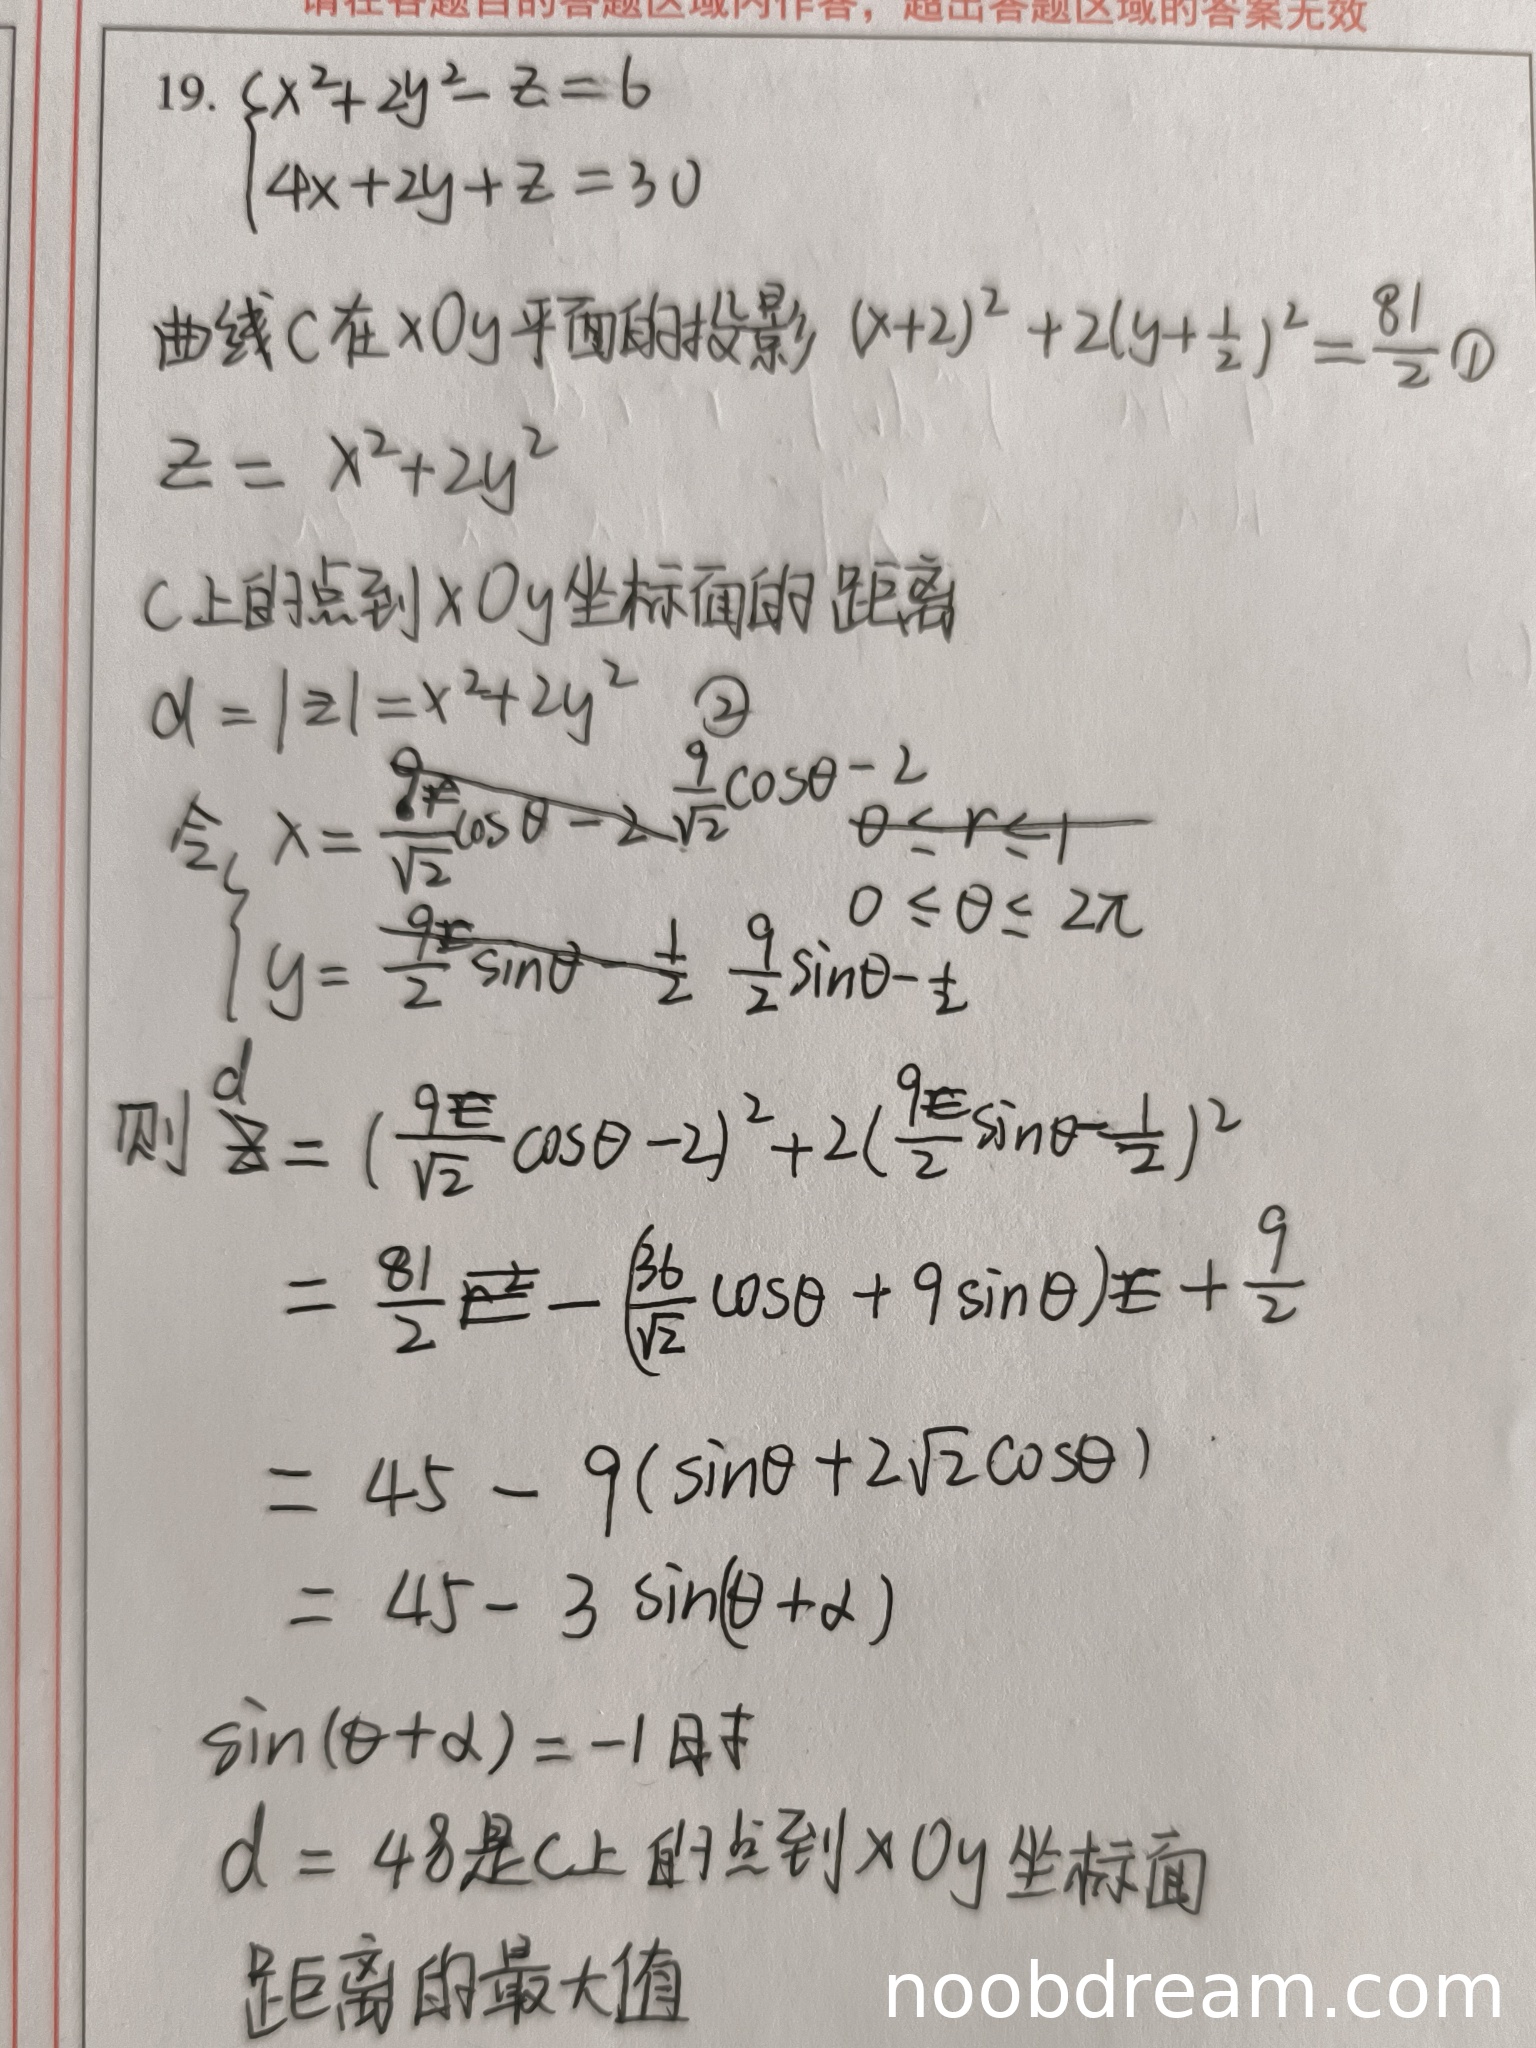 请在各题目的答题区域内作答，超出答题区域的答案无效
19. { x²+2y²-z=6
4x+2y+z=30
曲线C在xOy平面的投影 (x+2)²+2(y+1/2)²=81/2 ①
z= x²+2y²
C上的点到xOy坐标面的距离
d=|z|=x²+2y² ②
令 { x= 9/√2 cosθ-2
0≤θ≤2π
y= 9/2 sinθ-1/2
则 d=(9/√2 cosθ-2)²+2(9/2 sinθ-1/2)²
= 81/2 - (36/√2 cosθ+9sinθ)+9/2
= 45-9(sinθ+2√2cosθ)
= 45-3 sin(θ+α)
sin(θ+α)=-1时
d=48是C上的点到xOy坐标面
距离的最大值
noobdream.com